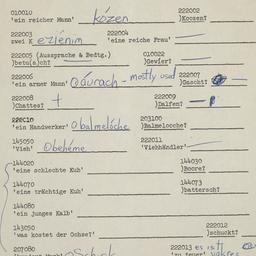 010010 222002
'ein reicher Mann' kózen )Koozen?
222003 222004
zwei K ezíenim 'eine reiche Frau'
222005 (Aussprache & Bedtg.) 010022
)betu(a)ch? )Gewier?
222006 222007
'ein armer Mann' dáurach - mostly used )Dascht?
222008 222009
)Chattes? + )Dalfen?
220010 203100
'ein Handwerker' balmelóche )Balmelooche?
145050 222011
'Vieh' behéme 'Viehhändler'
144020 144030
'eine schlechte Kuh' )Boore?
144070 144073
'eine trächtige Kuh' )battersch?
144080
'ein junges Kalb'
143050 222012
'was kostet der Ochse?' )schuckt?
207080 222013 es ist
'zu teuer' yakres